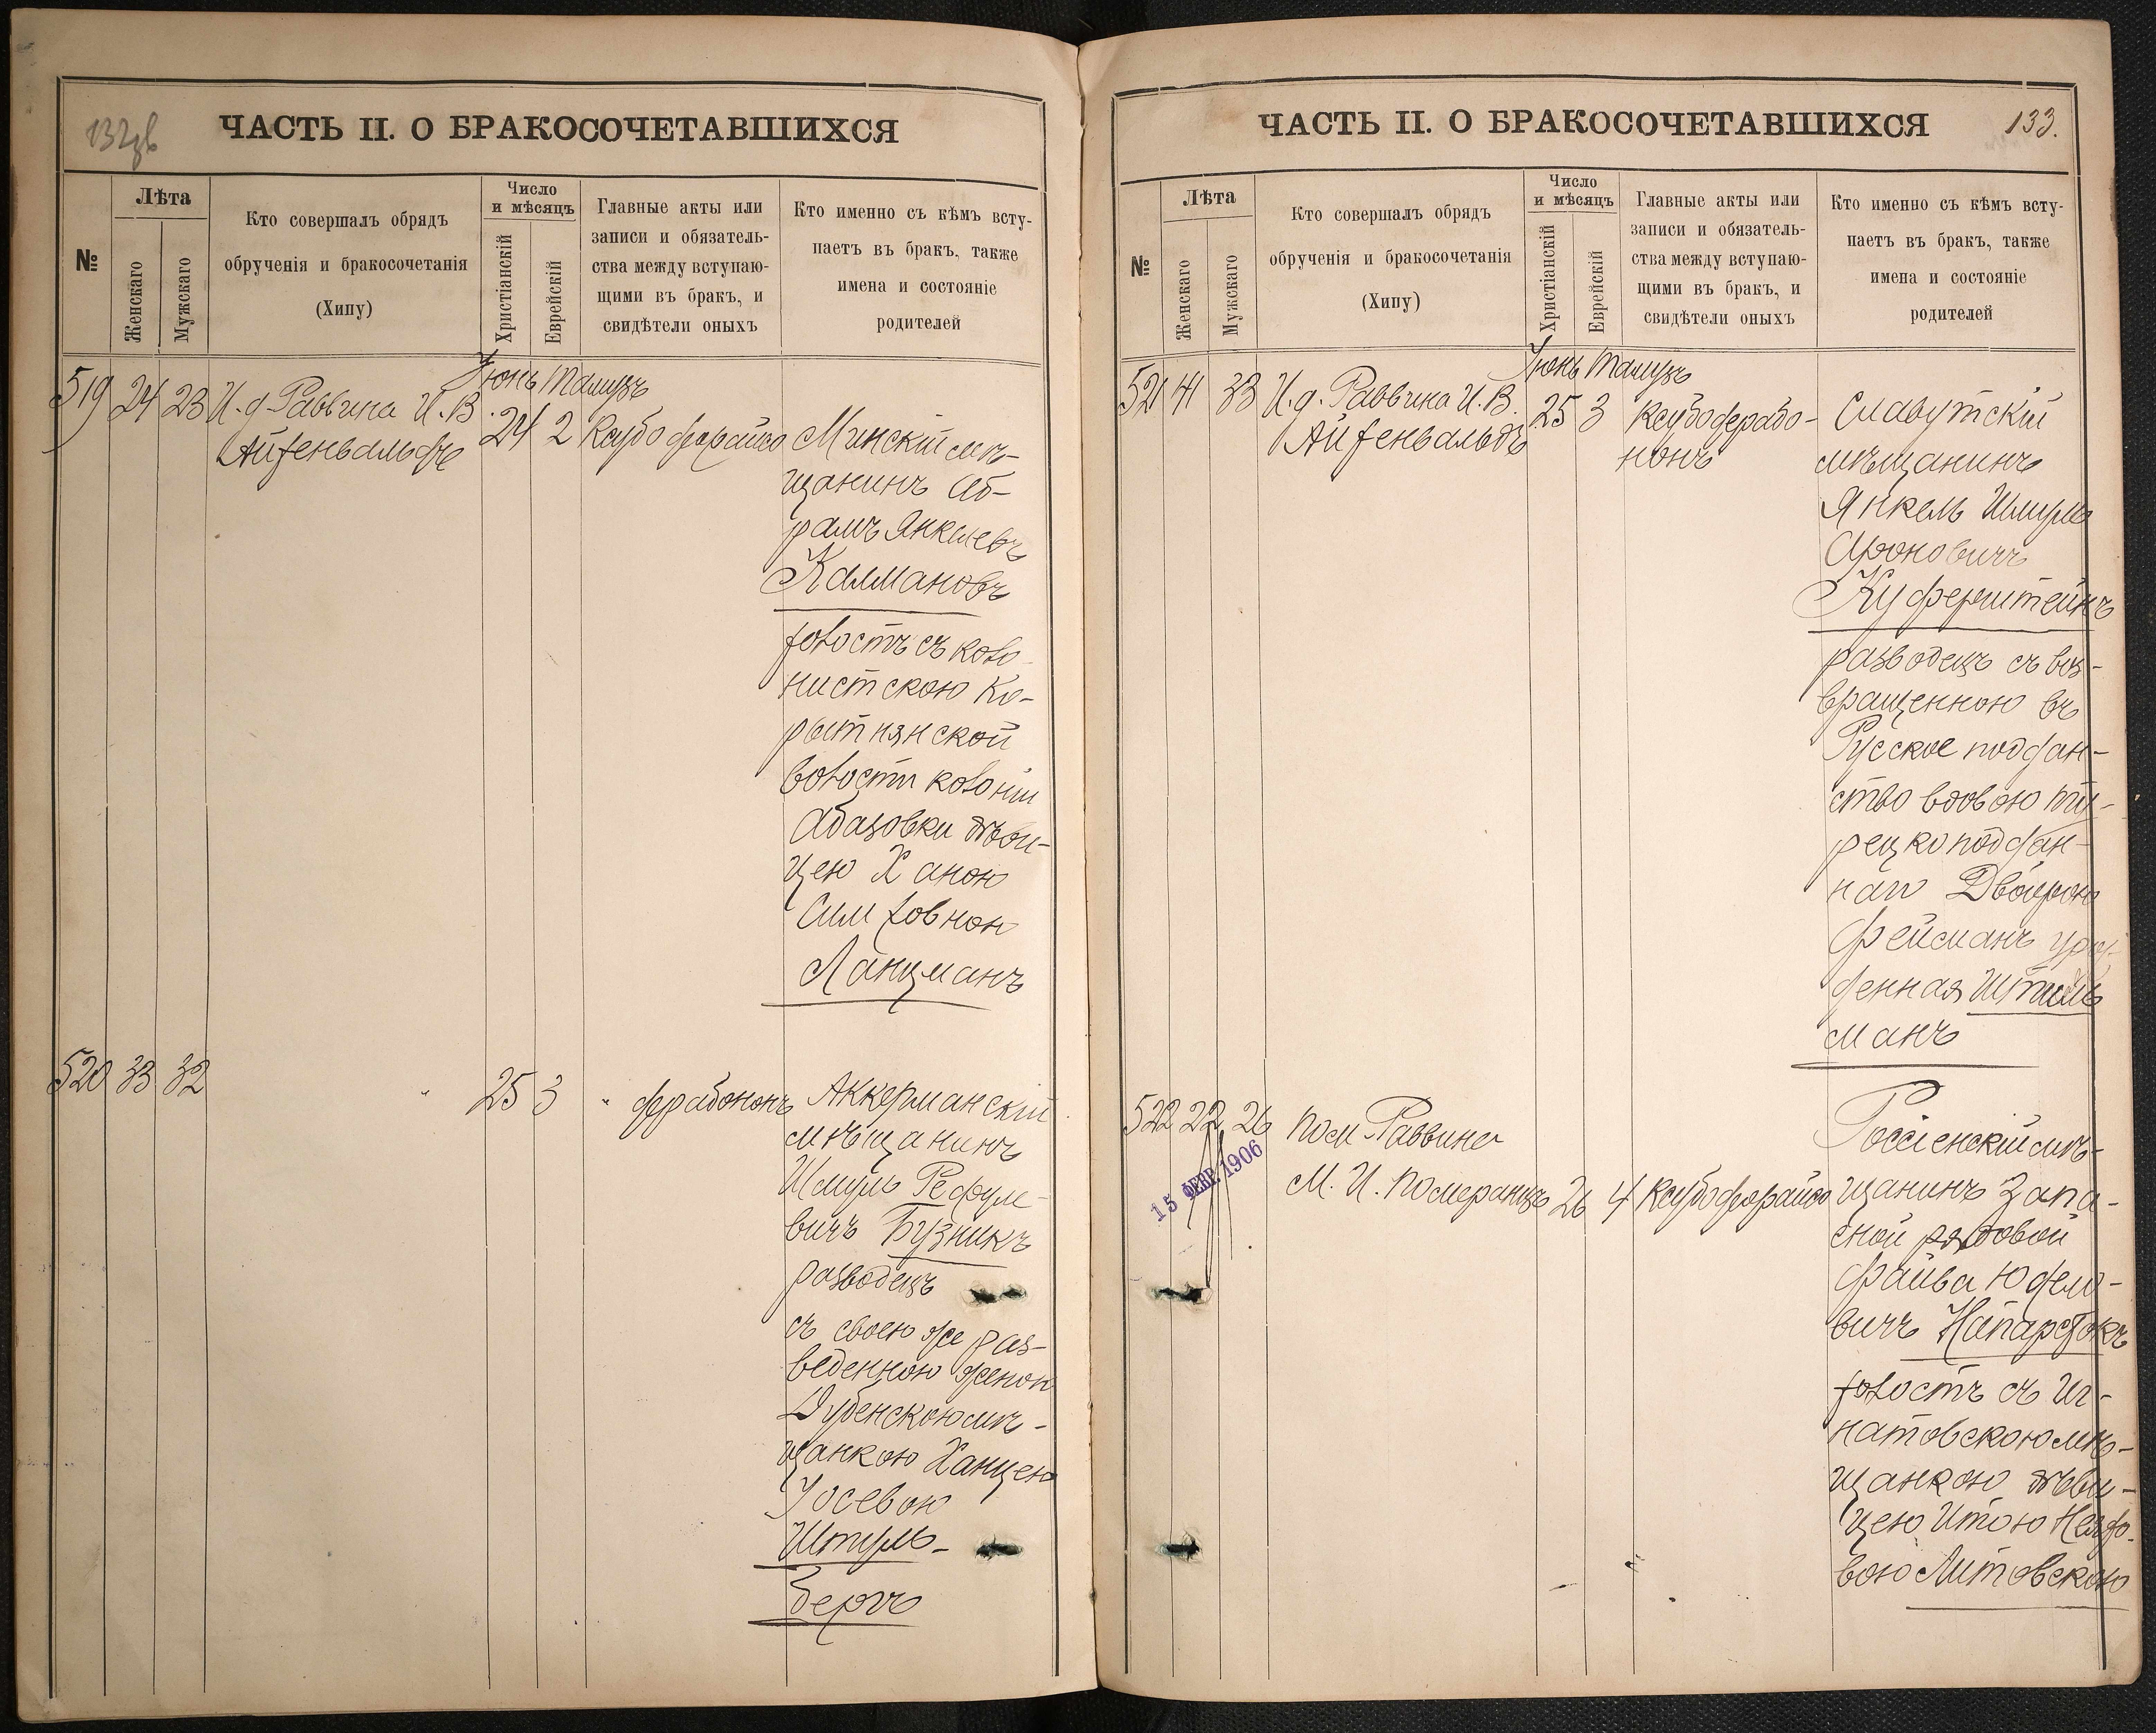 132об
ЧАСТЬ II. О БРАКОСОЧЕТАВШИХСЯ
№
Лѣта
Женскаго
Мужскаго
Кто совершалъ обрядъ
обрученія и бракосочетанія
(Хипу)
Число
и мѣсяцъ
Христіанскій
Еврейскій
Главные акты или
записи и обязатель-
ства между вступаю-
щими въ бракъ, и
свидѣтели оныхъ
Кто именно съ кѣмъ всту-
паетъ въ бракъ, также
имена и состояніе
родителей
Іюнь Тамузъ
519 24 23 И. д. Раввина И. В.
Айзенвальдъ
24 2 Ксубо дерайсо
Минскій мѣ-
щанинъ Аб-
рамъ Янкелевъ
Калмановъ
холостъ съ коло-
нистскою Ко-
рытнянской
волости колоніи
Абазовки дѣви-
цею Ханою
Симховною
Ланцманъ
520 33 32 " 25 3 " дерабононъ
Аккерманскій
мѣщанинъ
Шмуль Рефуле-
вичъ Бузникъ
разводецъ
съ своею же раз-
веденною женою
Дубенскою мѣ-
щанкою Ханцею
Іосевою
Штуль-
бергъ
ЧАСТЬ II. О БРАКОСОЧЕТАВШИХСЯ
133.
№
Лѣта
Женскаго
Мужскаго
Кто совершалъ обрядъ
обрученія и бракосочетанія
(Хипу)
Число
и мѣсяцъ
Христіанскій
Еврейскій
Главные акты или
записи и обязатель-
ства между вступаю-
щими въ бракъ, и
свидѣтели оныхъ
Кто именно съ кѣмъ всту-
паетъ въ бракъ, также
имена и состояніе
родителей
Іюнь Тамузъ
521 41 33 И. д. Раввина И. В.
Айзенвальдъ
25 3 Ксубо дерабо-
нонъ
Славутскій
мѣщанинъ
Янкель Шмуль
Ароновичъ
Куферштейнъ
разводецъ съ воз-
вращенною въ
Русское поддан-
ство вдовою ту-
рецко поддан-
наго Двойрою
Фейсманъ урож-
денная Штиль
манъ
522 22 26 Пом. Раввина
М. И. Померанцъ 26 4 Ксубо дерайсо
15 ФЕВР. 1906
Россіенскій мѣ-
щанинъ запа-
сной рядовой
Файва Юделе-
вичъ Напарстокъ
холостъ съ Иг-
натовскою мѣ-
щанкою дѣви-
цею Итою
вою Литовскою